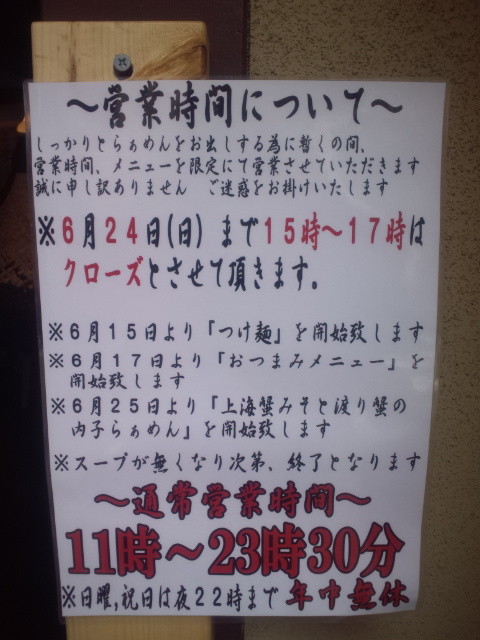 ～営業時間について～
しっかりとらぁめんをお出しする為に暫くの間、
営業時間、メニューを限定にて営業させていただきます
誠に申し訳ありません　ご迷惑をお掛けいたします
※６月２４日(日) まで１５時～１７時は
クローズとさせて頂きます。
※６月１５日より「つけ麺」を開始致します
※６月１７日より「おつまみメニュー」を
開始致します
※６月２５日より「上海蟹みそと渡り蟹の
内子らぁめん」を開始致します
※スープが無くなり次第、終了となります
～通常営業時間～
11時～23時30分
※日曜,祝日は夜２２時まで 年中無休